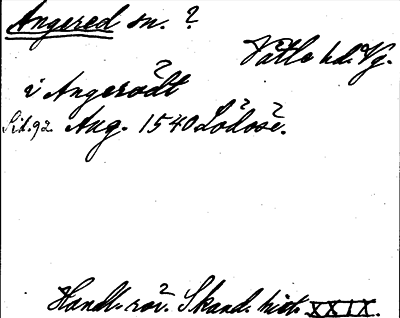 Angered sn. ?
Vättle hd. Vg.
i Angerödt
Sid. 92. Aug. 1540 Lödosë.
Handl. rör. Skand. hist. XXIX.